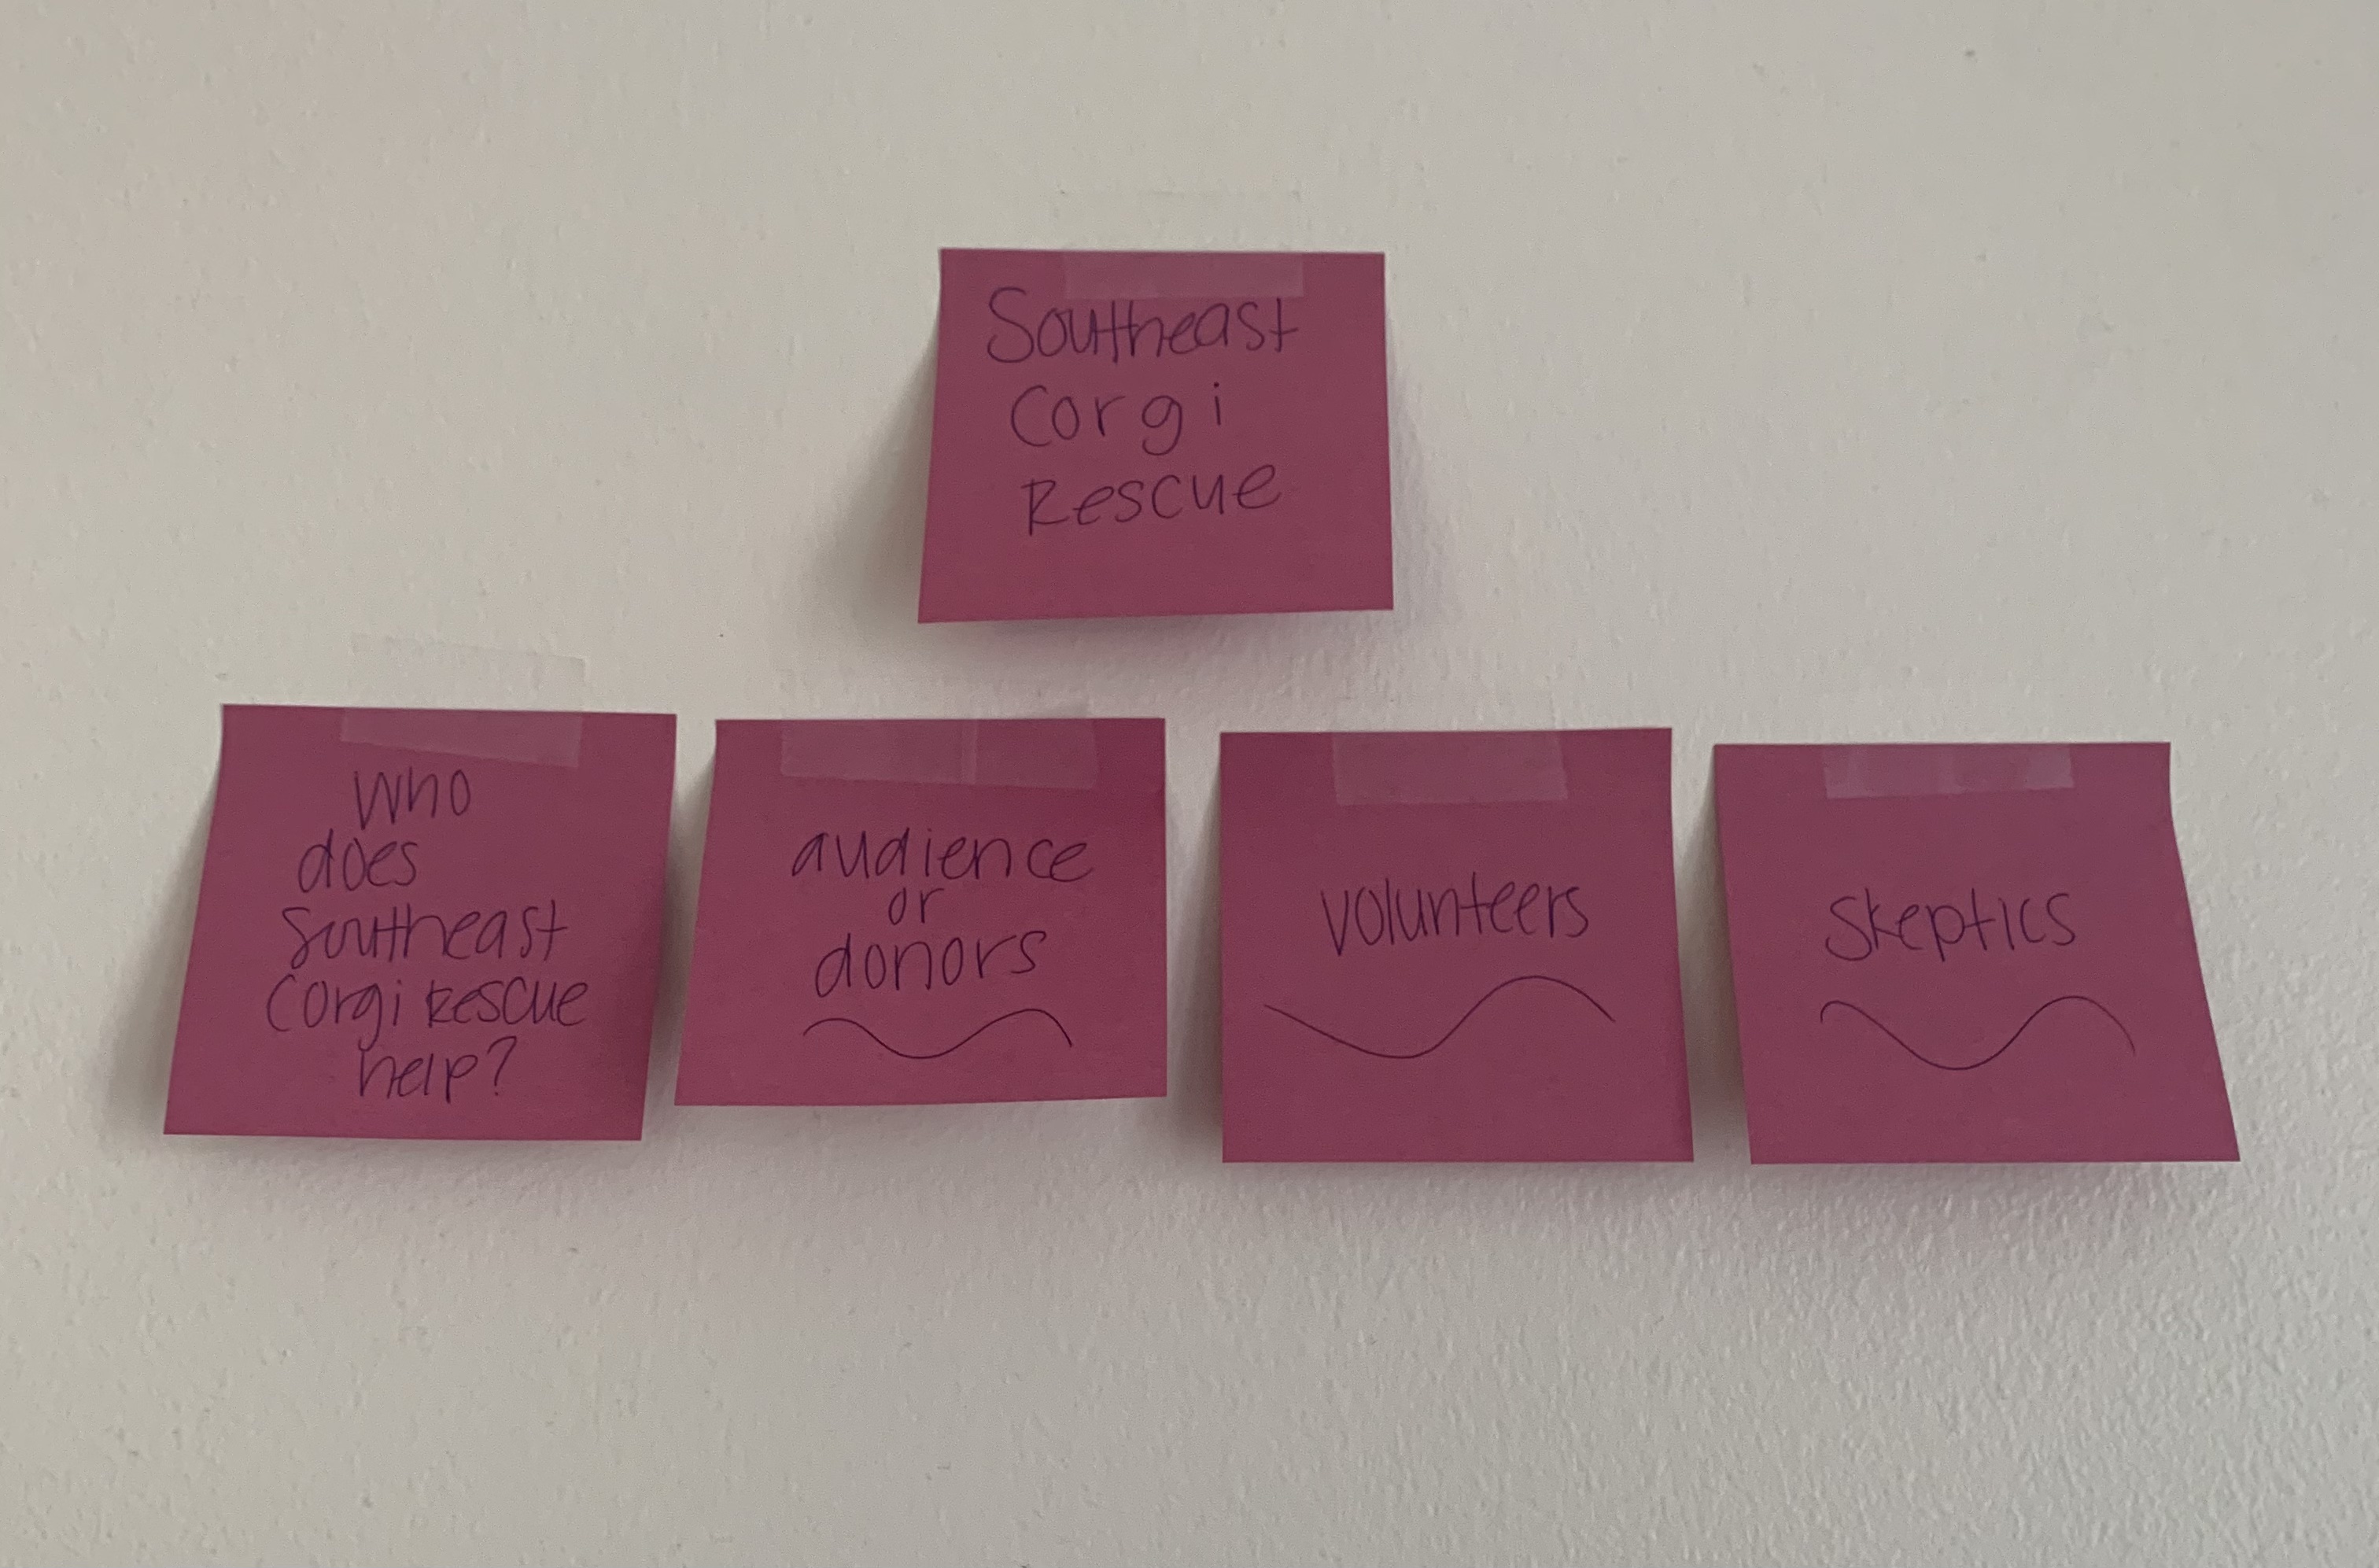 Southeast
Corgi
Rescue
Who
does
Southeast
Corgi Rescue
help?
audience
or
donors
volunteers
skeptics